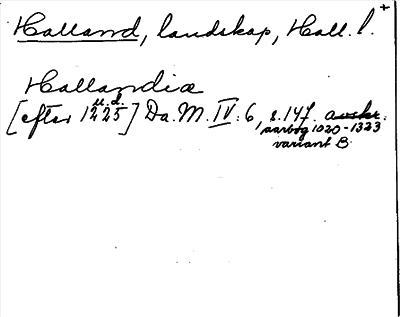 Halland, landskap, Hall. l. +
Hallandiæ
u. d.
[efter 1225] Da. M. IV: 6, s. 147. avskr.
aarbog 1020-1323
variant B